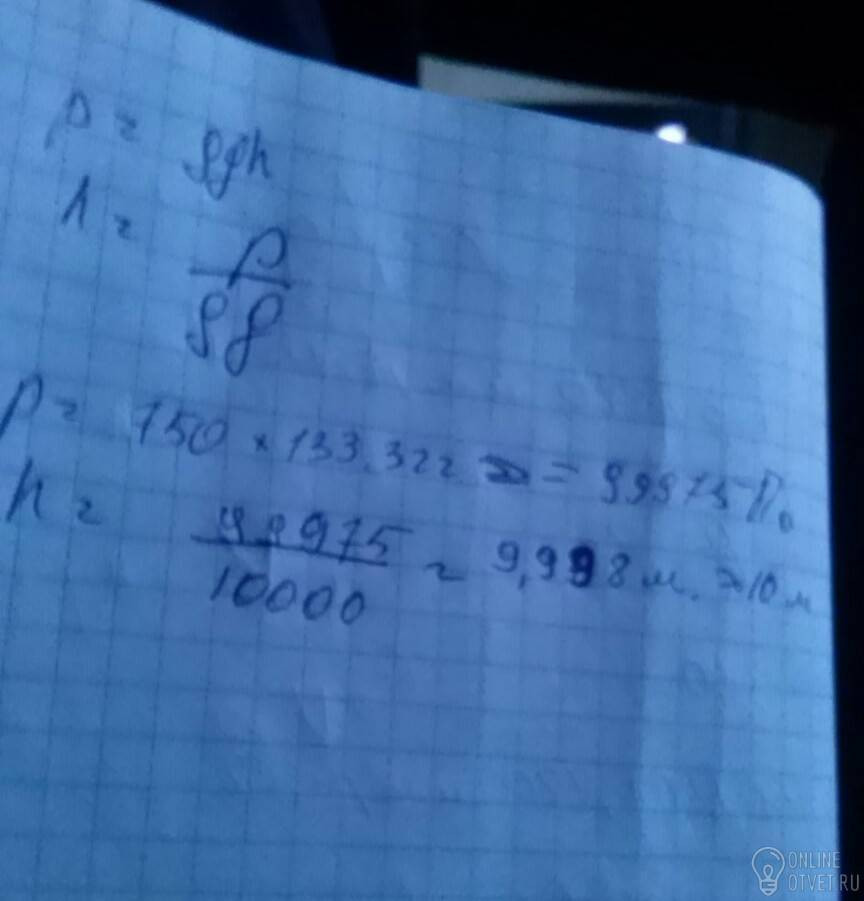 p = ρgh
h = p/ρg
p = 750 × 133.322 = 99975 Па
h = 99975/10000 = 9,998 м. ≈ 10 м
ONLINE
OTVET.RU